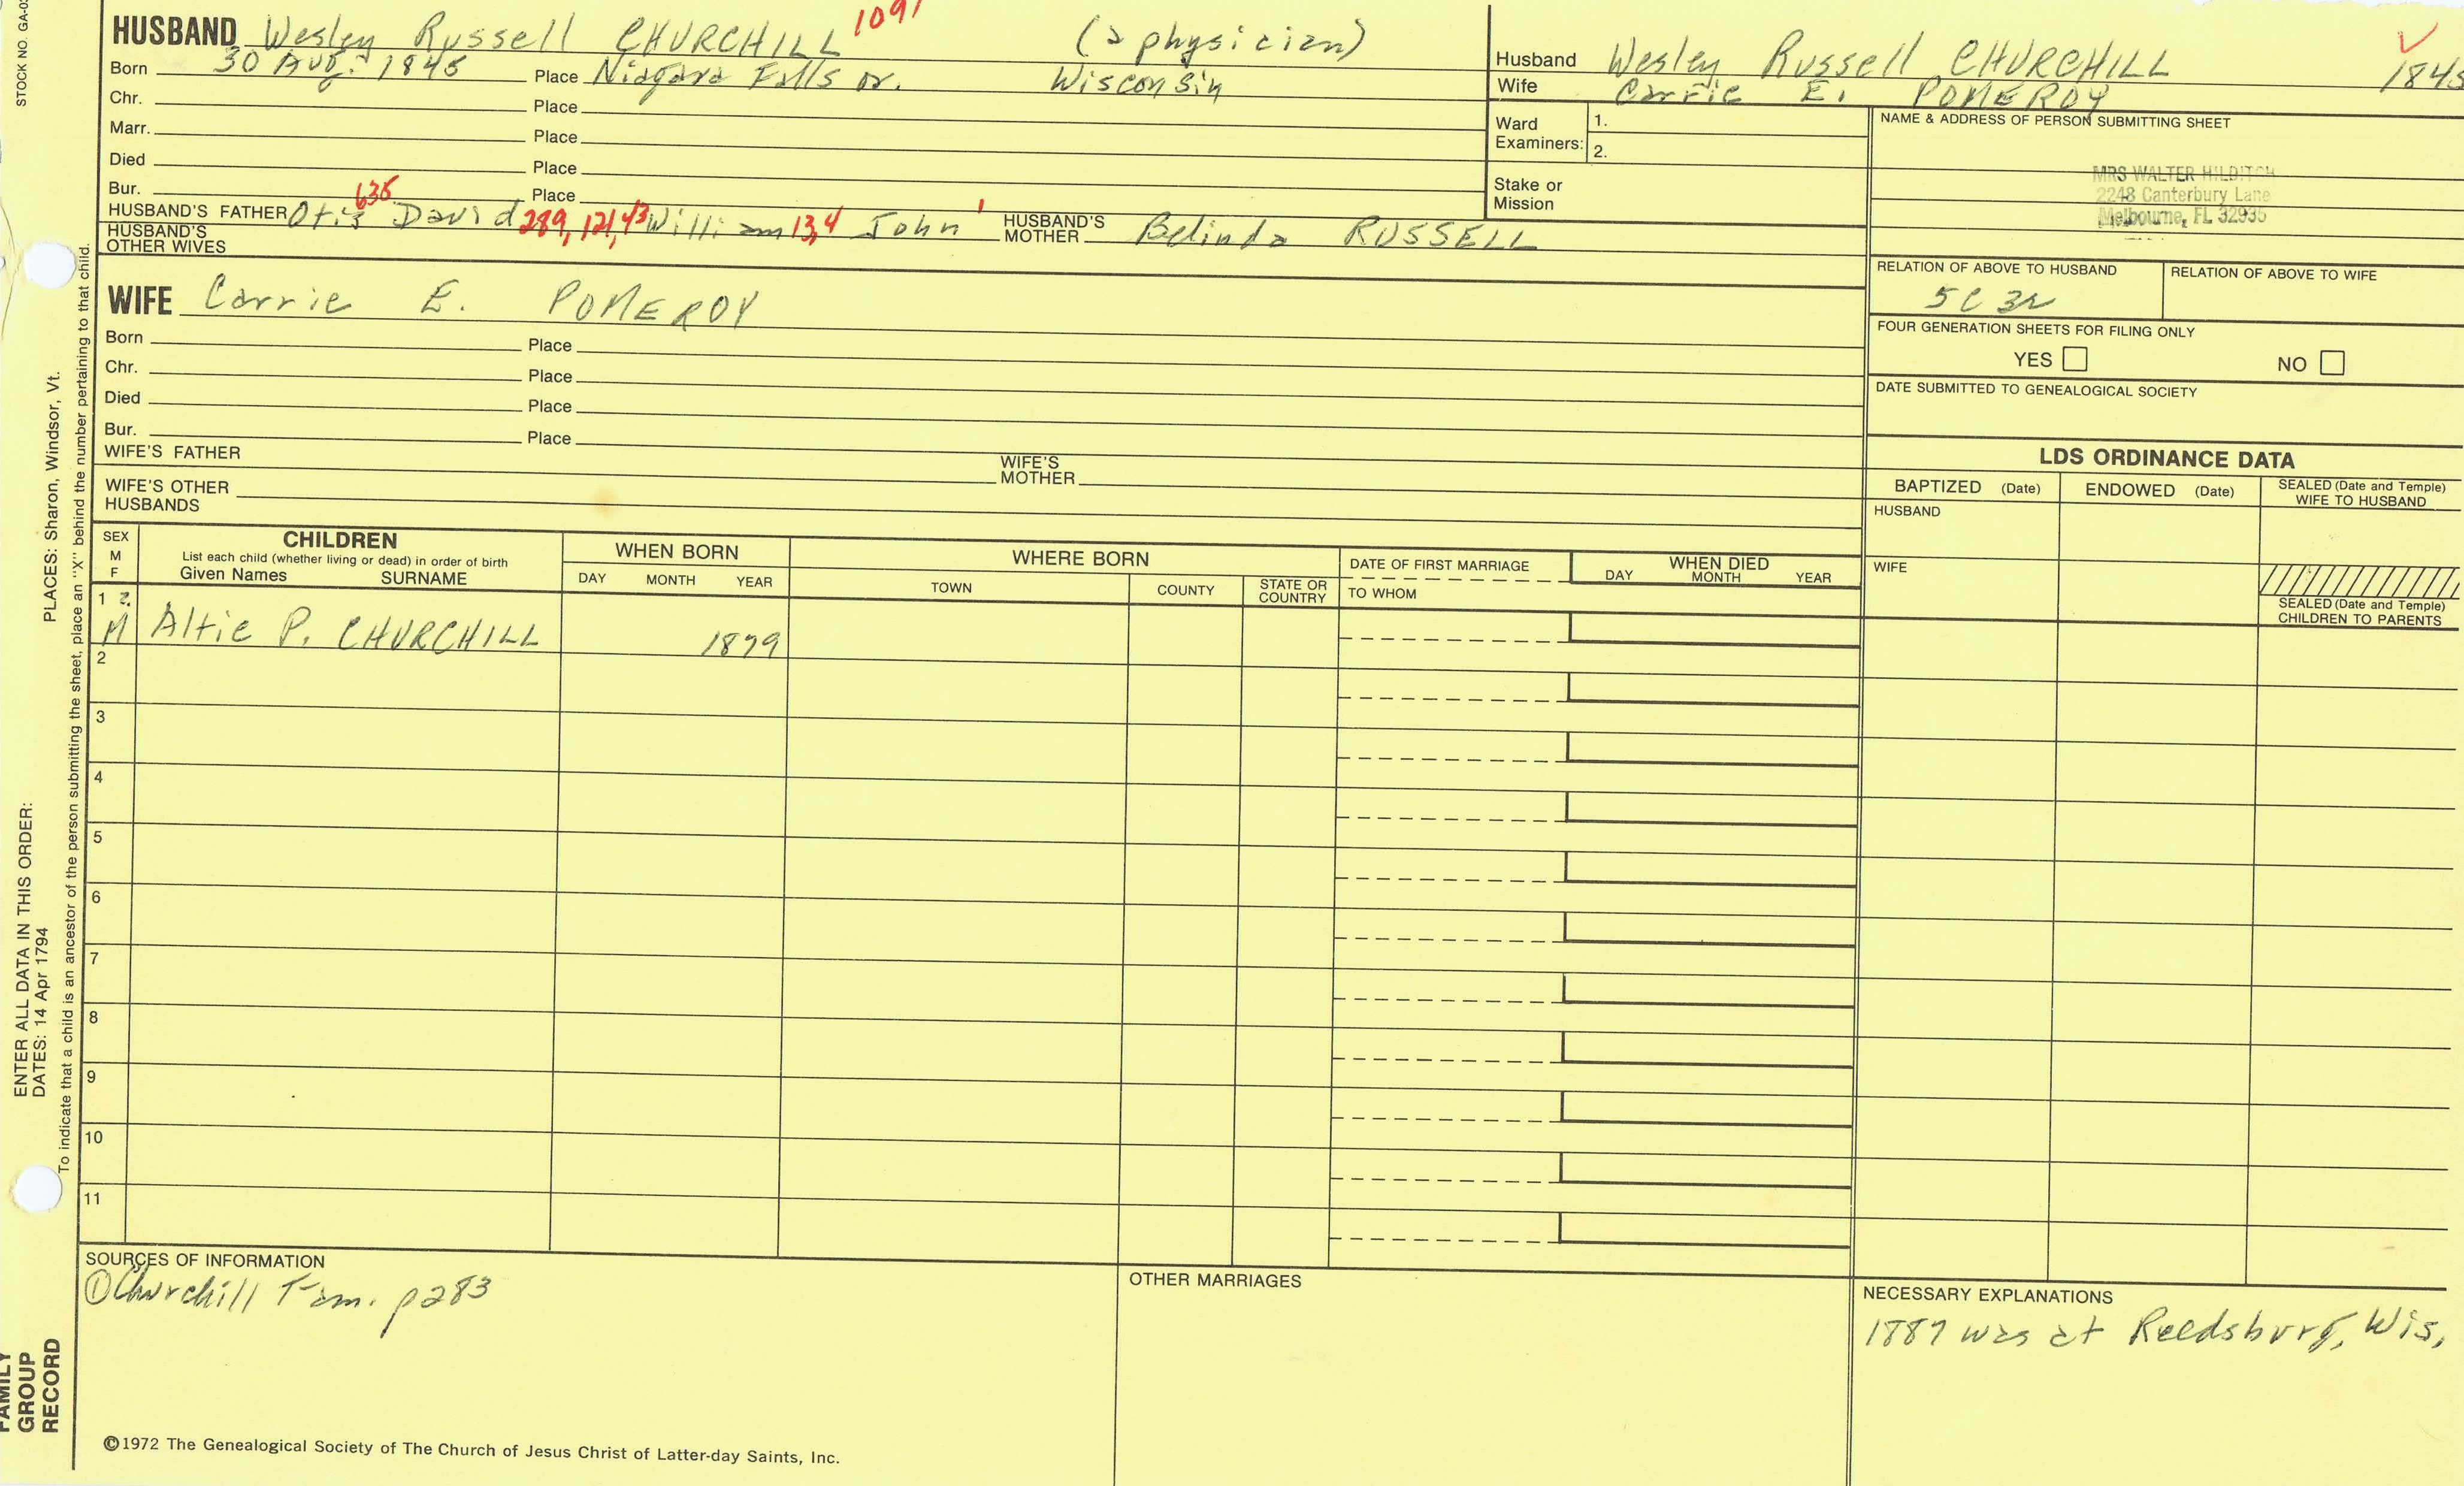 STOCK NO. GA-0
HUSBAND Wesley Russell CHURCHILL 1091 (a physician)
Born 30 Aug. 1845 Place Niagara Falls or. Wisconsin
Chr. Place
Marr. Place
Died Place
Bur. Place
HUSBAND'S FATHER Otis 635 David 289, 121, 43 William 13, 4 John 1 HUSBAND'S MOTHER Belinda RUSSELL
HUSBAND'S OTHER WIVES
Husband Wesley Russell CHURCHILL 1845
Wife Carrie E. POMEROY
Ward Examiners: 1.
2.
Stake or Mission
NAME & ADDRESS OF PERSON SUBMITTING SHEET
MRS WALTER HILDITCH
2248 Canterbury Lane
Melbourne, FL 32935
RELATION OF ABOVE TO HUSBAND RELATION OF ABOVE TO WIFE
5C 3R
FOUR GENERATION SHEETS FOR FILING ONLY
YES NO
DATE SUBMITTED TO GENEALOGICAL SOCIETY
WIFE Carrie E. POMEROY
Born Place
Chr. Place
Died Place
Bur. Place
WIFE'S FATHER WIFE'S MOTHER
WIFE'S OTHER HUSBANDS
LDS ORDINANCE DATA
BAPTIZED (Date) ENDOWED (Date) SEALED (Date and Temple) WIFE TO HUSBAND
HUSBAND
WIFE
SEALED (Date and Temple) CHILDREN TO PARENTS
SEX M F
CHILDREN
List each child (whether living or dead) in order of birth
Given Names SURNAME
WHEN BORN
DAY MONTH YEAR
WHERE BORN
TOWN COUNTY STATE OR COUNTRY
DATE OF FIRST MARRIAGE
TO WHOM
WHEN DIED
DAY MONTH YEAR
1 ?
M Altie P. CHURCHILL 1879
2
3
4
5
6
7
8
9
10
11
SOURCES OF INFORMATION
① Churchill Fam. p283
OTHER MARRIAGES
NECESSARY EXPLANATIONS
1887 was at Reedsburg, Wis,
©1972 The Genealogical Society of The Church of Jesus Christ of Latter-day Saints, Inc.
FAMILY GROUP RECORD
ENTER ALL DATA IN THIS ORDER:
DATES: 14 Apr 1794 PLACES: Sharon, Windsor, Vt.
To indicate that a child is an ancestor of the person submitting the sheet, place an "X" behind the number pertaining to that child.